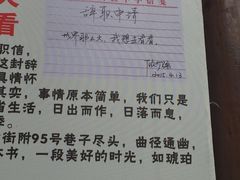 辞职申请
世界那么大,我想去看看。
2015.4.13
看
职信,
这封辞
具情怀
其实,事情原本简单,我们只是
省生活,日出而作,日落而息,
委。
街附95号巷子尽头,曲径通幽,
本书,一段美好的时光,如琥珀